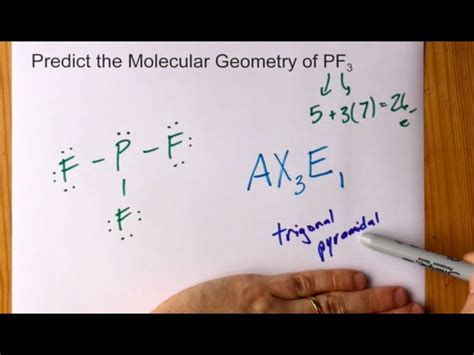 Predict the Molecular Geometry of PF₃
5 + 3(7) = 26 e-
F - P - F
F
AX₃E₁
trigonal
pyramidal